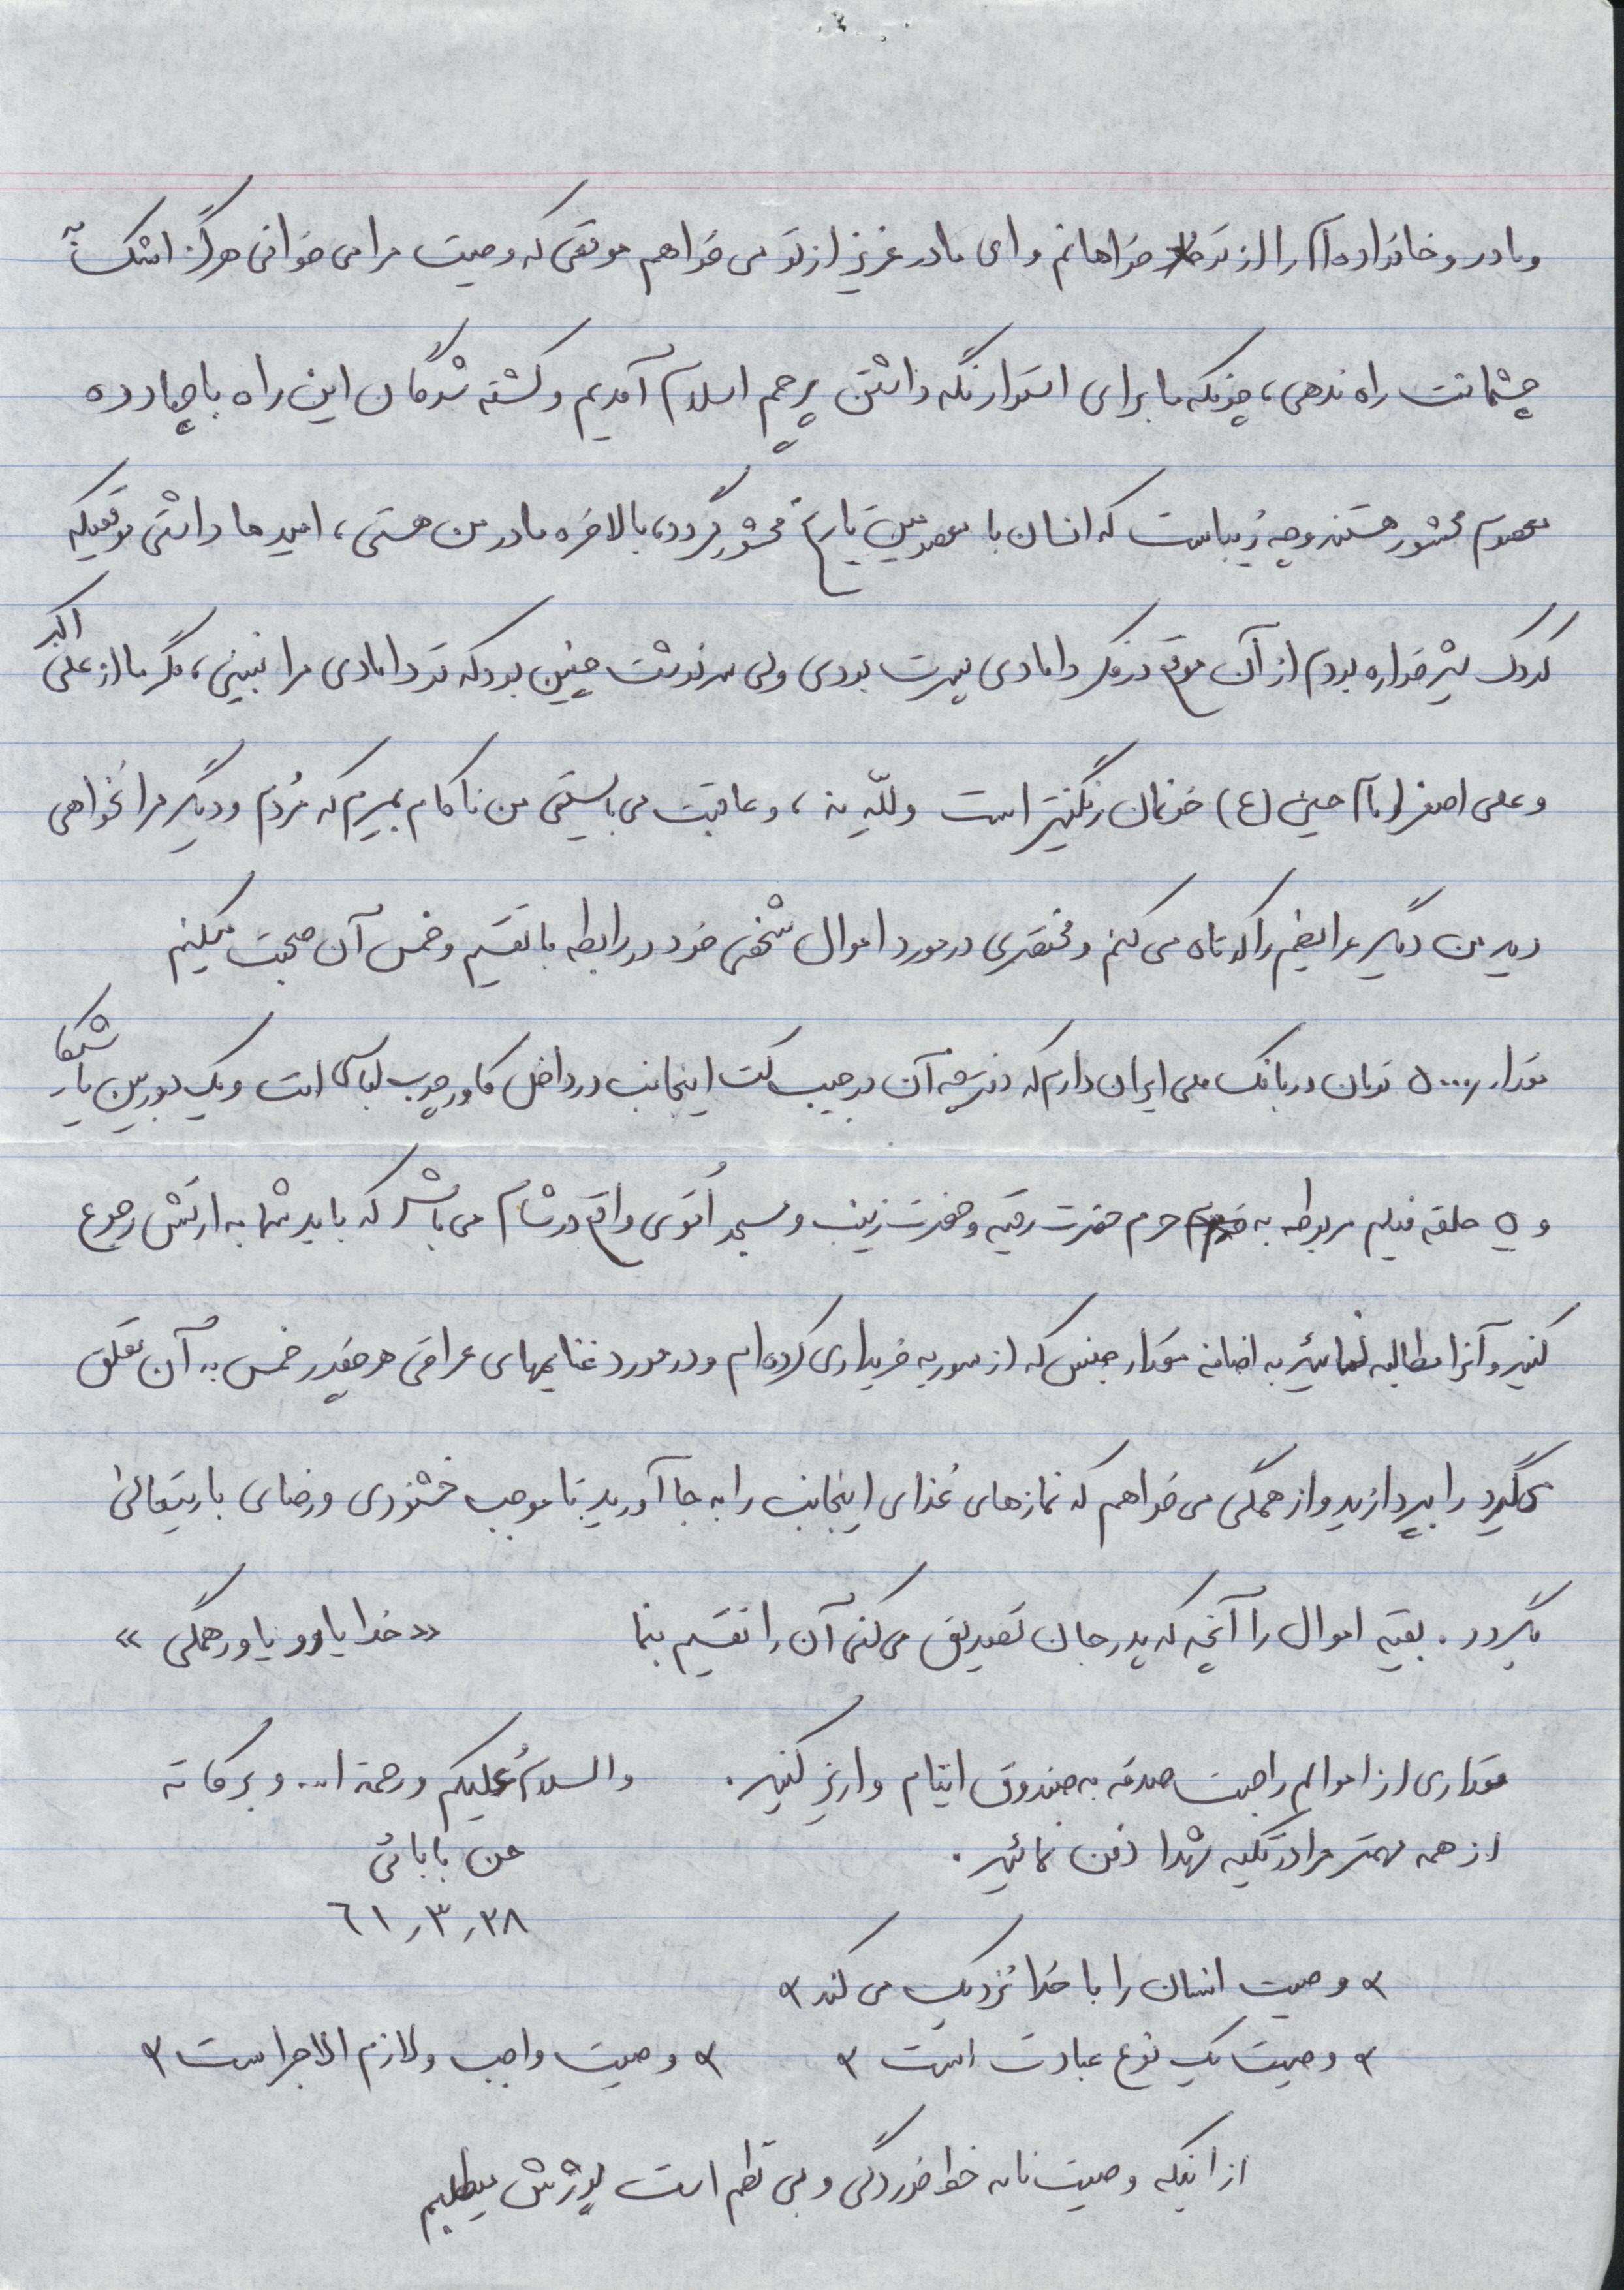 ۲
و مادر و خانواده ام را از تو خواهانم و ای مادر عزیز از تو می خواهم موقعی که وصیت مرا می خوانی هرگز اشک به
چشمانت راه ندهی، چونکه ما برای استوار نگه داشتن پرچم اسلام آمدیم و کشته شدگان این راه با چهارده
معصوم محشور هستند و چه زیباست که انسان با معصومین پاک محشور گردد، بالاخره مادر من هستی، امیدها داشتی موقعیکه
کودک شیرخواره بودم از آن موقع در فکر دامادی پسرت بودی ولی سرنوشت چنین بود که تو دامادی مرا نبینی، مگر ما از علی اکبر
و علی اصغر امام حسین (ع) خونمان رنگینتر است وللّه نه، و عاقبت می بایستی من ناکام بمیرم که مُردم و دیگر مرا نخواهی
دید من دیگر عرایضم را کوتاه می کنم و مختصری در مورد اموال شخصی خود در رابطه با تقسیم و خمس آن صحبت میکنیم
مقدار ۵۰۰۰ تومان در بانک ملی ایران دارم که دفترچه آن در جیب کت اینجانب در داخل کاور چوب لباسی است و یک دوربین یاشیکا
و ۵ حلقه فیلم مربوطه به حرم حضرت رقیه و حضرت زینب و مسجد اُموی واقع در شام می باشد که باید شما به ارتش رجوع
کنید و آنرا مطالبه نمائید به اضافه مقدار جنس که از سوریه خریداری کرده ام و در مورد غنایمهای عراقی هر چقدر خمس به آن تعلق
میگیرد را بپردازید و از همگی می خواهم که نمازهای غذای اینجانب را به جا آورید تا موجب خشنودی و رضای باریتعالی
بگردد. بقیه اموال را آنچه که پدر جان تصدیق می کنی آن را تقسیم بنما «خدا یار و یاور همگی»
مقداری از اموالم را جهت صدقه به صندوق ایتام واریز کنید. والسلامُ علیکم و رحمة ا... و برکاته
از همه مهمتر مرا در تکیه شهدا دفن نمائید. حسن بابائی
۶۱,۳,۲۸
* وصیت انسان را با خدا نزدیک می کند *
* وصیت یک نوع عبادت است * * وصیت واجب و لازم الاجراست *
از اینکه وصیت نامه خط خوردگی و بی نظم است پوزش میطلبم